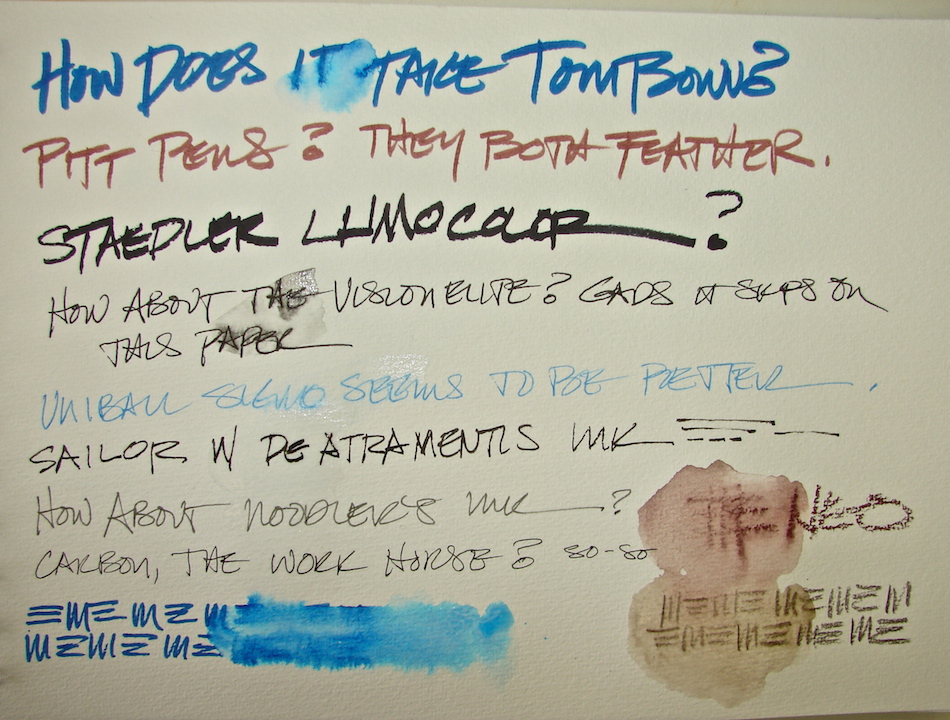 HOW DOES IT TAKE TOMBOWS?
PITT PENS? THEY BOTH FEATHER.
STAEDLER LUMOCOLOR ?
HOW ABOUT THE VISION ELITE? GADS IT SKIPS ON
THIS PAPER
UNIBALL SIGNO SEEMS TO BE BETTER .
SAILOR W/ DE ATRAMENTIS INK
HOW ABOUT NOODLER'S INK ?
NEO
CARBON, THE WORK HORSE? SO-SO